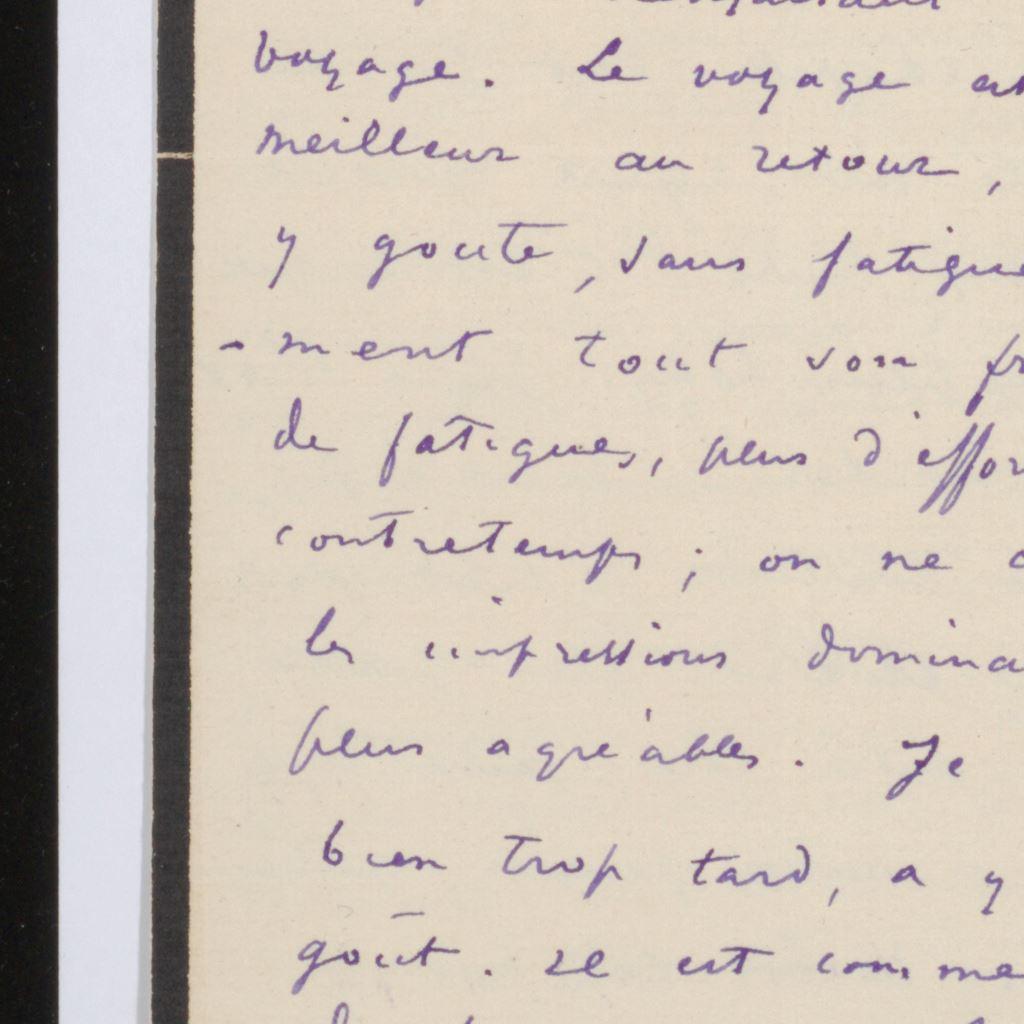 voyage. Le voyage est
meilleur au retour,
y goute, sans fatigue
-ment tout son fr
de fatigues, plus d'effor
contretemps ; on ne
les impressions domina
plus agréables. Je
bien trop tard, a y
goût. Il est comme